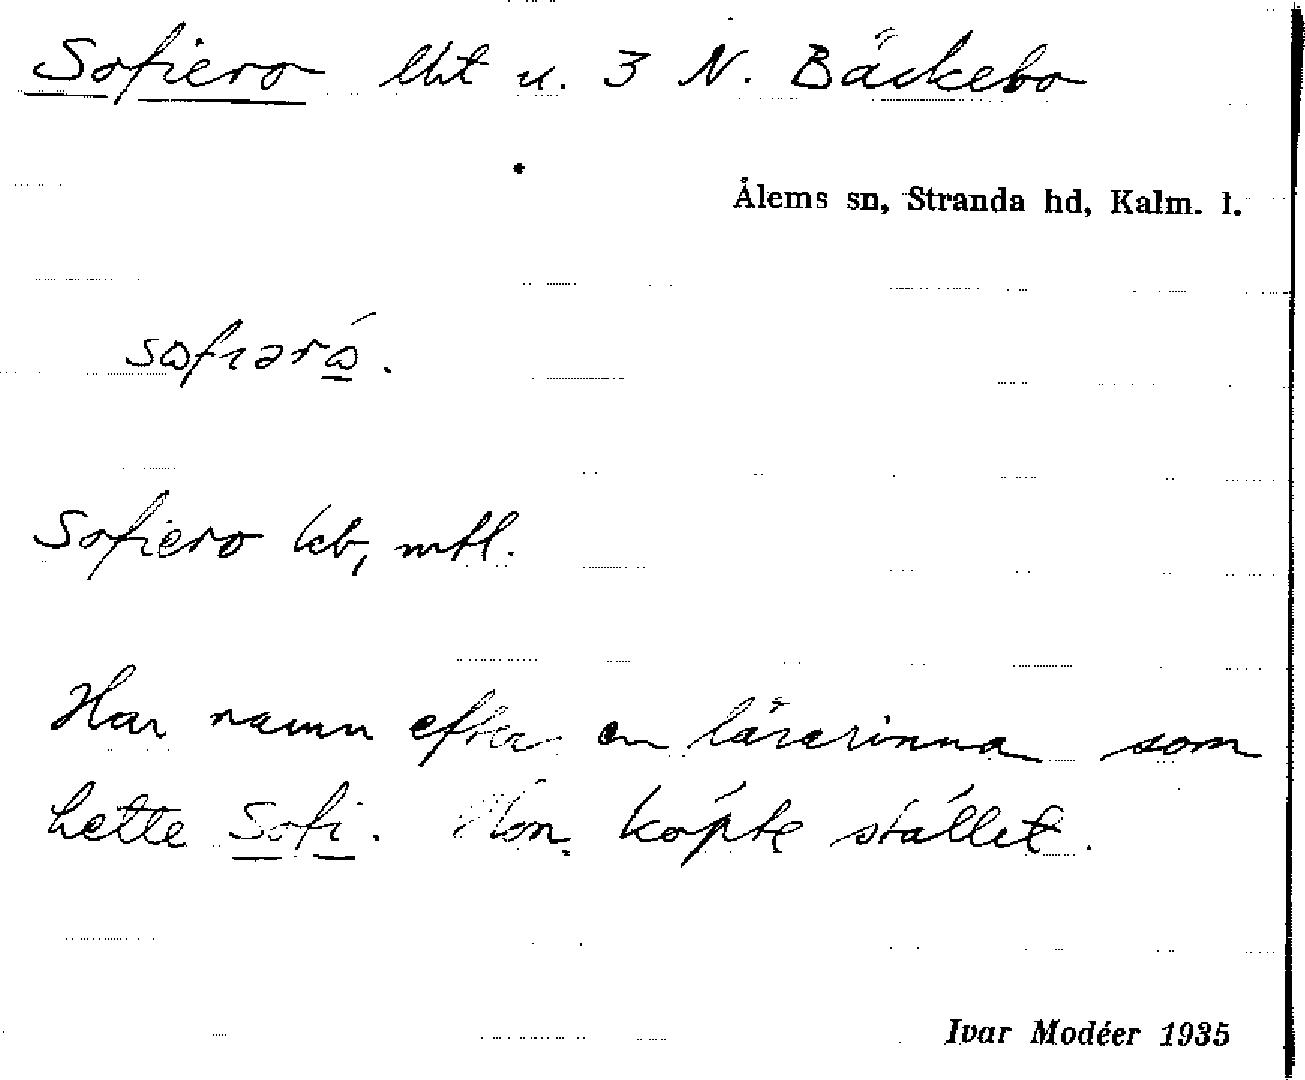 Sofiero lht u. 3 N. Bäckebo
Ålems sn, Stranda hd, Kalm. l.
Sofiero kb, mtl.
Har namn efter en lärarinna som
hette Sofi. Hon köpte stället.
Ivar Modéer 1935